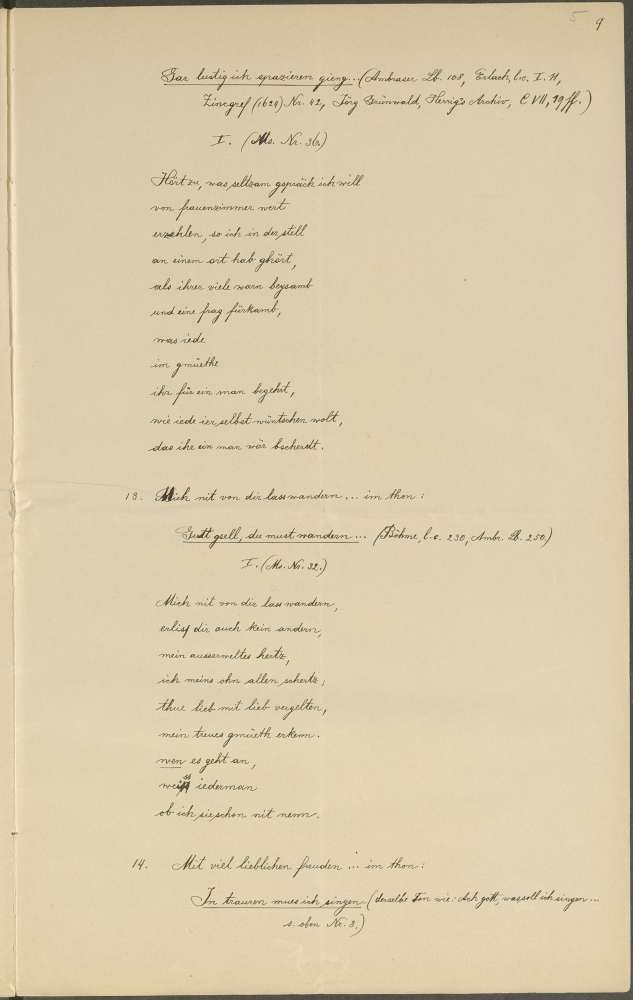 5 9
Gar lustig ich spazieren gieng... (Ambraser Lb. 108, Erlach, l.c. I. 11,
Zincgref (1624) Nr. 42, Jörg Grünwald, Herrig's Archiv, C VII, 19 ff.)
I. (Ms. Nr. 36.)
Hört zu, was seltzam gspräch ich will
von frauenzimmer wert
erzehlen, so ich in der still
an einem ort hab ghört,
als ihrer viele warn beysamb
und eine frag fürkamb,
was iede
im gmüethe
ihr für ein man begehrt,
wie iede ier selbst wüntschen wolt,
das ihr ein man wär bescherdt.
13. Mich nit von dir lass wandern... im thon:
Gutt gsell, du must wandern... (Böhme, l.c. 230, Ambr. Lb. 250.)
I. (Ms. Nr. 32.)
Mich nit von dir lass wandern,
erliss dir auch kein andern,
mein ausserweltes hertz,
ich meins ohn allen schertz;
thue lieb mit lieb vergelten,
mein treues gmüeth erkenn.
wen es geht an,
weiss iederman
ob ich sie schon nit nenn.
14. Mit viel lieblichen freuden... im thon:
In trauren mues ich singen (derselbe Ton wie: Ach gott, was soll ich singen...
s. oben Nr. 3.)